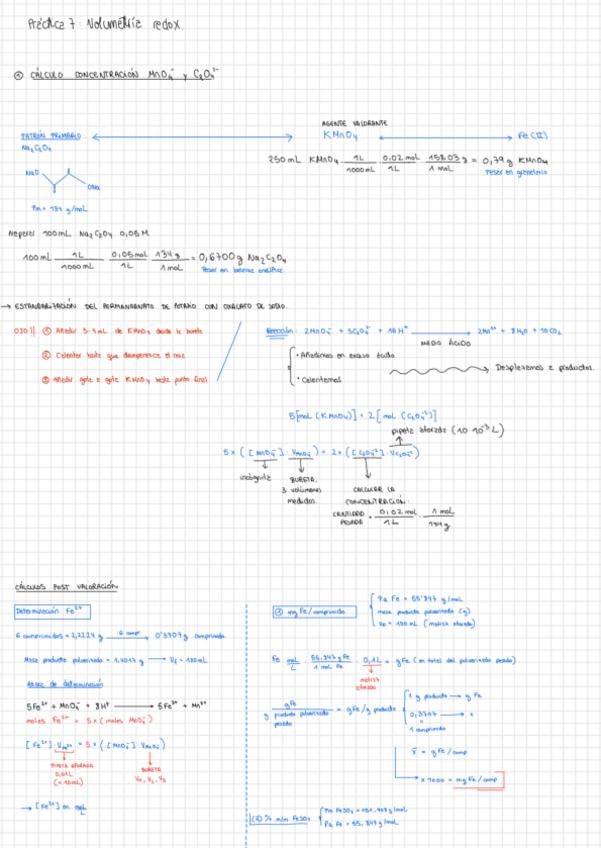 Práctica 7: Volumetría redox.
① CÁLCULO CONCENTRACIÓN MnO₄⁻ y C₂O₄²⁻
AGENTE VALORANTE
PATRÓN PRIMARIO ⟷ KMnO₄ ⟷ Fe(II)
Na₂C₂O₄
250 mL KMnO₄ · 1L/1000mL · 0,02 mol/1L · 158,03 g/1 mol = 0,79 g KMnO₄
Pesar en granatario
NaO
ONa
Pm = 134 g/mol
Preparar 100mL Na₂C₂O₄ 0,05M
100mL · 1L/1000mL · 0,05mol/1L · 134g/1mol = 0,6700g Na₂C₂O₄
Pesar en balanza analítica
→ ESTANDARIZACIÓN DEL PERMANGANATO DE POTASIO CON OXALATO DE SODIO
OJO!! ① Añadir 3-4 mL de KMnO₄ desde la bureta
② Calentar hasta que desaparezca el rosa
③ Añadir gota a gota KMnO₄ hasta punto final
Reacción: 2MnO₄⁻ + 5C₂O₄²⁻ + 16H⁺ → 2Mn²⁺ + 8H₂O + 10CO₂
MEDIO ÁCIDO
· Añadimos en exceso ácido
· Calentamos
Desplazamos a productos.
5[mol (KMnO₄)] = 2[mol (C₂O₄²⁻)]
pipeta aforada (10·10⁻³ L)
5 × ([MnO₄⁻] · V MnO₄⁻) = 2 × ([C₂O₄²⁻] · V C₂O₄²⁻)
incógnita
BURETA: 3 volúmenes medidos.
CALCULAR LA CONCENTRACIÓN:
CANTIDAD PESADA · 0,02 mol/1L · 1 mol/134g
CÁLCULOS POST VALORACIÓN
Determinación Fe²⁺
6 comprimidos = 2,2224 g → 6 comp → 0'3707g comprimido.
Masa producto pulverizado = 1,4017g → Vf = 100mL
Reacc de determinación
5Fe²⁺ + MnO₄⁻ + 8H⁺ → 5Fe³⁺ + Mn²⁺
moles Fe²⁺ = 5 × (moles MnO₄⁻)
[Fe²⁺] · V Fe²⁺ = 5 × ([MnO₄⁻] · V MnO₄⁻)
PIPETA AFORADA
0,01L
(= 10mL)
BURETA
V₁, V₂, V₃
→ [Fe²⁺] en mol/L
① mg Fe/comprimido
Pa Fe = 55'847 g/mol
masa producto pulverizado (g)
Vf = 100 mL (matraz aforado)
Fe mol/L · 55,847g Fe/1 mol Fe · 0,1L = g Fe (en total del pulverizado pesado)
matraz aforado
g Fe/g producto pulverizado pesado = g Fe/g producto
1 g producto → g Fe
0,3707 → x
1 comprimido
x̄ = g Fe/comp
× 1000 = mg Fe/comp
(2) % m/m FeSO₄
Pm FeSO₄ = 151,909 g/mol
Pa Fe = 55,847 g/mol